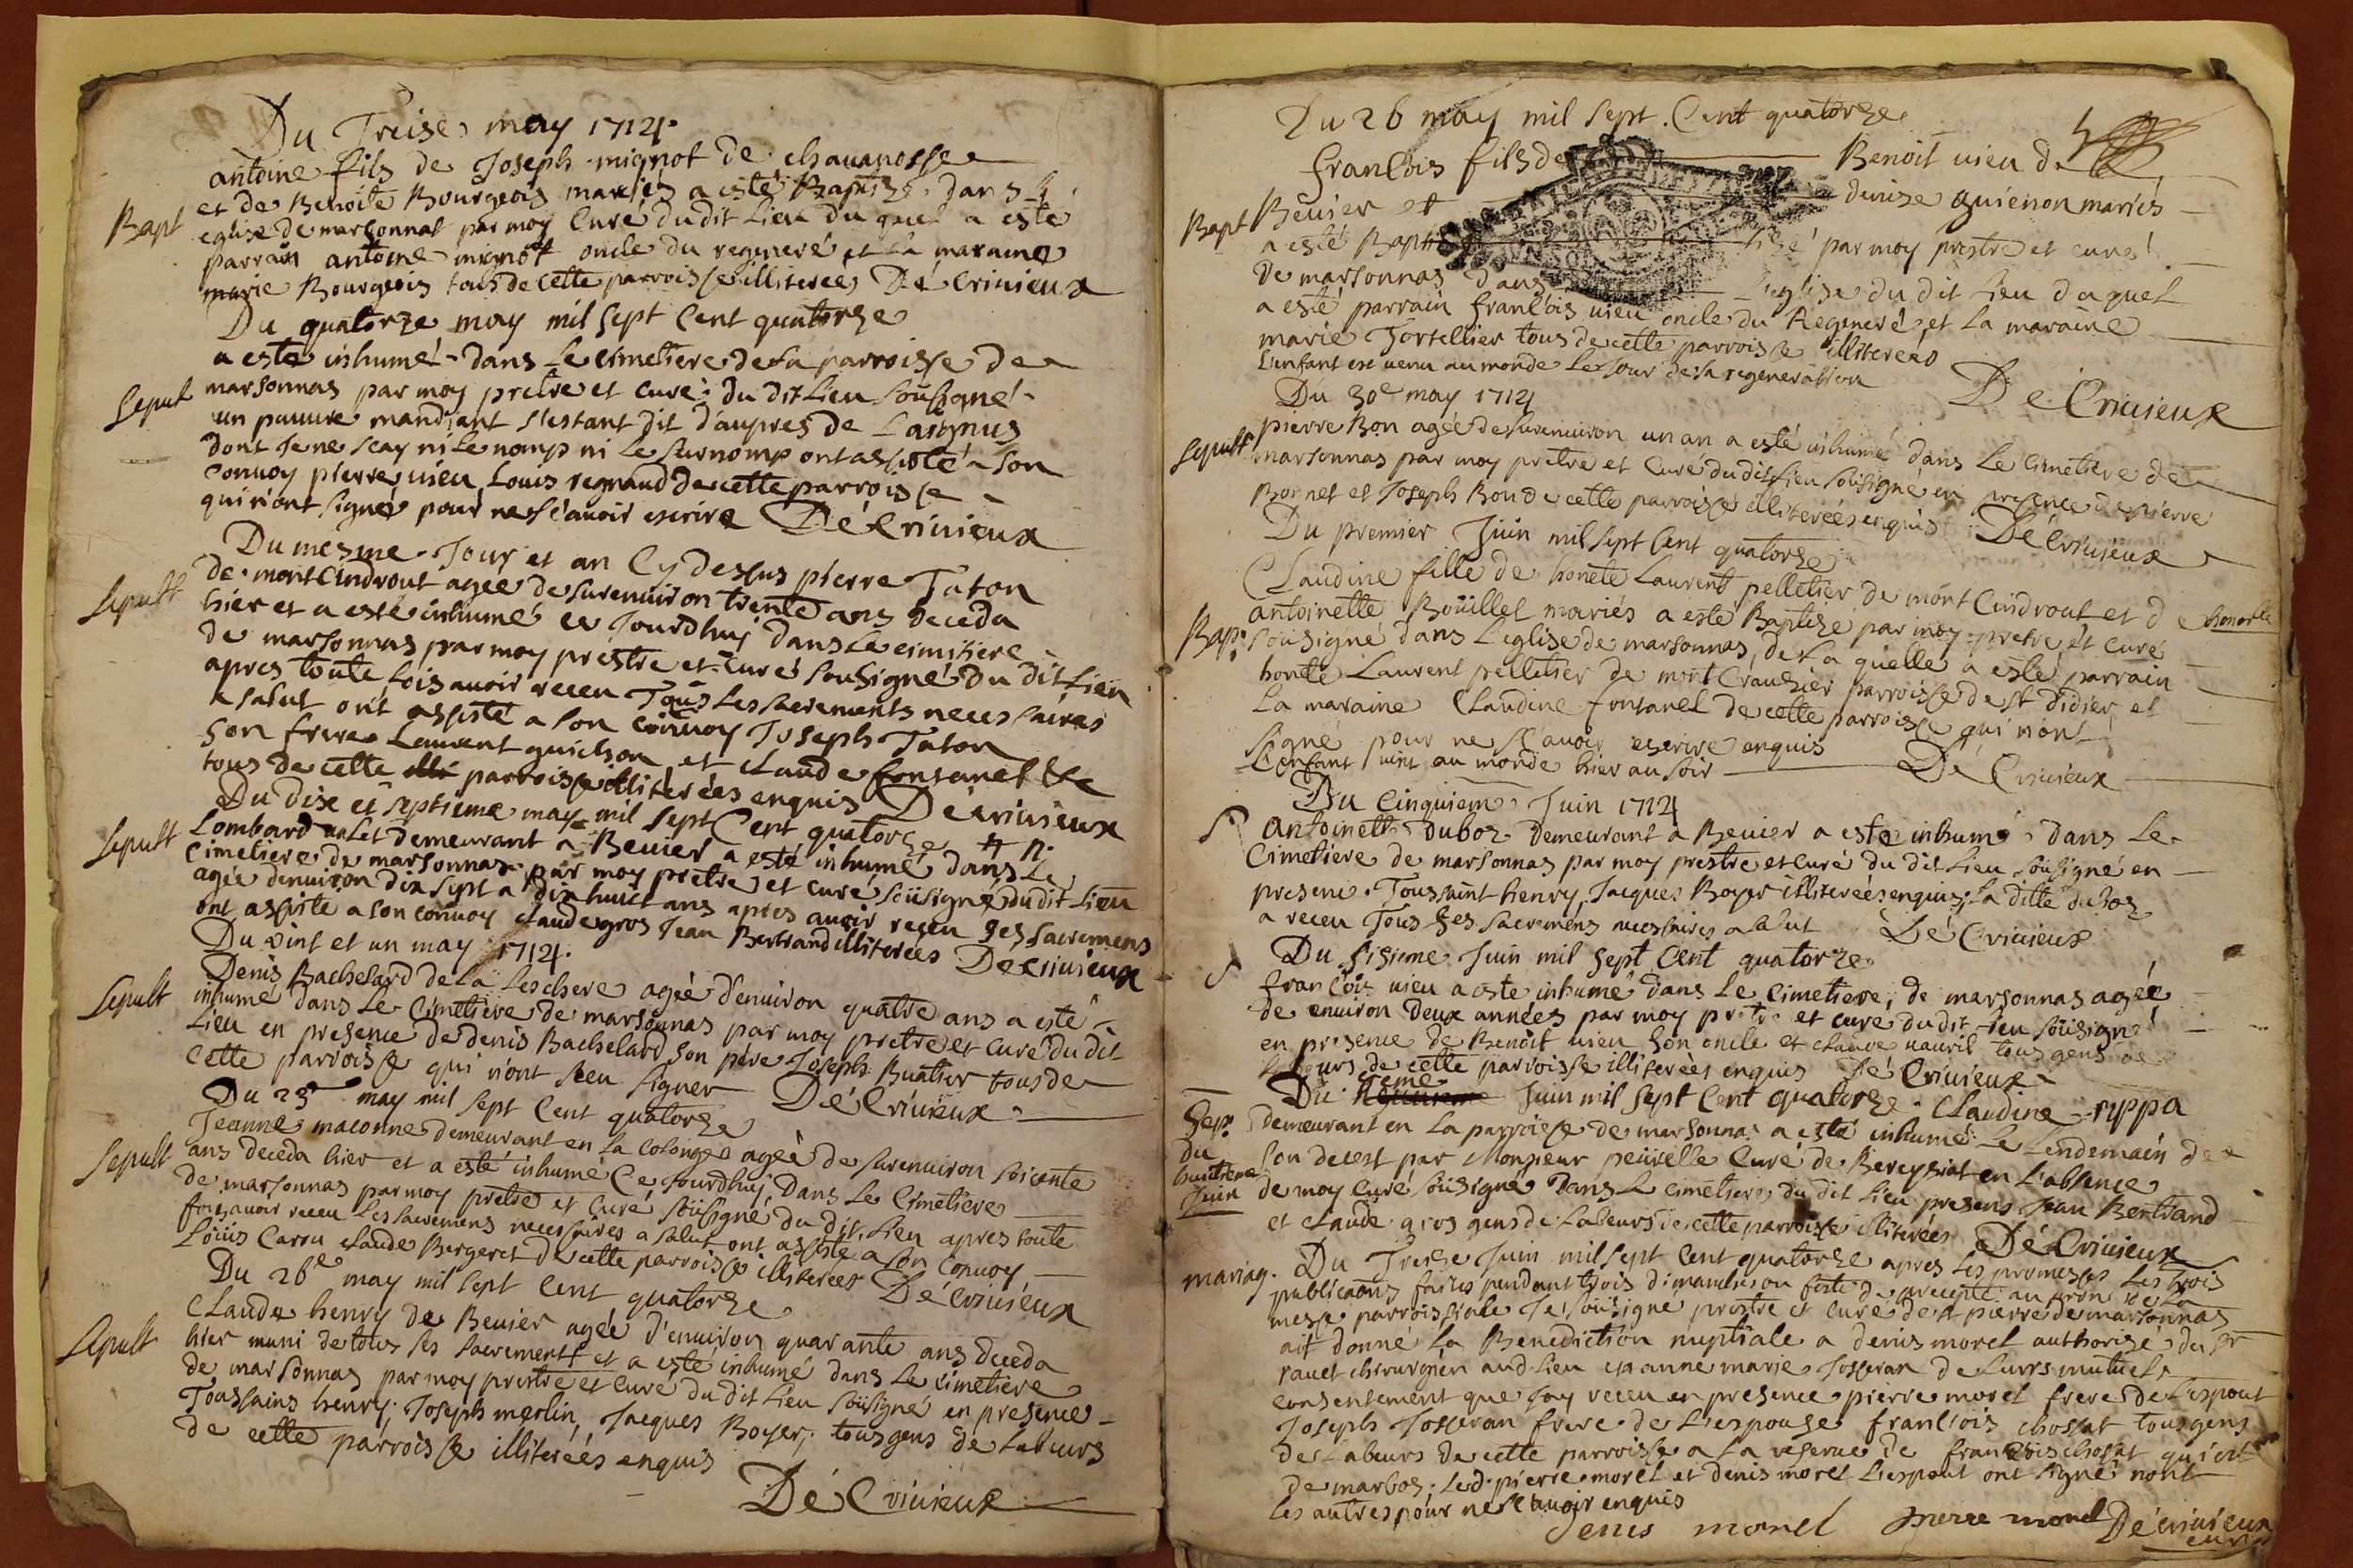 Du Treise may 1714.
antoine fils de Joseph mignot de chavanosse
et de Benoite Bourgeois mariés a esté Baptizé dans L
Bapt
eglise de marsonnas par moy Curé du dit Lieu du quel a esté
parrain antoine mignot oncle du regeneré et La maraine
marie Bourgeois tous de Cette parroisse illiterées Dé Crivieux
Du quatorze may mil sept Cent quatorze
a esté inhumé dans Le Cimetiere de La parroisse de
Sepul
marsonnas par moy pretre et curé du dit Lieu sousigné
un pauvre mandiant s'estant dit d'aupres de
dont Je ne scay ni Le nomp ni Le surnomp ont assisté a son
Convoy pierre vieu Louis regnaud de cette parroisse
qui n'ont signé pour ne sçavoir escrire Dé Crivieux
Du mesme Jour et an Cy dessus pierre Taton
Sepult
de montCindrout agée de surenuiron trente ans deceda
hier et a esté inhumé ce Jourdhuj dans Le cimitiere
de marsonnas par moy prestre et Curé sousigné du dit Lieu
apres toute fois avoir receu Tous Les sacrements necessaires
a salut ont assisté a son Convoy Joseph Taton
son frere Laurent guichon et claude fontanel
tous de cette parroisse illiterées enquis Dé crivieux
Du dix et septieme may mil sept Cent quatorze
Sepult
Lombard valet demeurant a Beuier a esté inhumé dans Le
Cimetiere de marsonnas par moy pretre et curé soüsigné du dit Lieu
agée denuiron dix sept a dix huict ans apres avoir receu ses sacremens
ont assisté a son convoy claude gros Jean Bertrand illiterées De crivieux
Du vint et un may 1714.
Sepult
Denis Bachelard de La Leschere agée d'enuiron quatre ans a esté
inhumé dans Le Cimetiere de marsonnas par moy pretre et Curé du dit
Lieu en presence de denis Bachelard son père Joseph Buatier tous de
Cette parroisse qui n'ont sceu signer Dé Crivieux
Du may mil sept Cent quatorze
Jeanne maconne demeurant en La Colonge agée de surenuiron soicente
Sepult
ans deceda hier et a esté inhumé Ce Jourdhuj Dans Le Cimetiere
de marsonnas par moy pretre et Curé soüsigné du dit Lieu apres toute
fois avoir receu Les sacremens necessaires a salut ont assisté a son Convoy
Loüis Carru claude Bergeret de cette parroisse illiterées Dé Crivieux
Du 26e may mil sept Cent quatorze
Claude henry de Beuier agée d'enuiron quarante ans deceda
Sepult
hier muni de tous ses sacrements et a esté inhumé dans Le Cimetiere
de marsonnas par moy prestre et Curé du dit Lieu soüsigné en presence
Toussains henry, Joseph merlin, Jacques Boyer, tous gens de Labeurs
de cette parroisse illiterées enquis
Dé Crivieux
Du 26 may mil sept Cent quatorze
franCois fils de Benoit vieu de
Bapt
Beuier et denise guienon mariés
a esté Bapt tizé par moy prestre et curé
De marsonnas dans L'eglise du dit Lieu duquel
a esté parrain franCois vieu oncle du Regeneré et La maraine
marie Tortellier tous de cette parroisse illiterées
L'enfant est venu au monde Le Jour de sa regeneration
Dé Crivieux
Du 30e may 1714
Sepult
pierre Bon agée de surenuiron un an a esté inhumé dans Le Cimetiere de
marsonnas par moy pretre et Curé du dit Lieu sousigné en presence de pierre
Bornet et Joseph Bon de cette parroisse illiterées enquis Dé Crivieux
Du premier Juin mil sept Cent quatorze
Claudine fille de honete Laurent pelletier de montCindrout et d e honorble
antoinette Boüillet mariés a esté Baptizé par moy pretre et Curé
Bap.
sousigné dans L'eglise de marsonnas, de La quelle a esté parrain
honete Laurent pelletier de mont parroisse de st Didier et
La maraine Claudine fontanel de cette parroisse qui n'ont
signé pour ne sçavoir escrire enquis
L'enfant vint au monde hier au soir Dé Crivieux
Du Cinquiem Juin 1714
S
Antoinette Duboz demeurant a Beuier a esté inhumé dans Le
Cimetiere de marsonnas par moy prestre et curé du dit Lieu sousigné en
presence Toussaint henry, Jacques Boyer illiterées enquis La ditte duboz
a receu Tous ses sacremens necessaires a salut Dé Crivieux
Du sisieme Juin mil sept Cent quatorze
S
franCois vieu a esté inhumé dans Le Cimetiere de marsonnas agée
de enuiron deux années par moy pretre et curé du dit Lieu soüsigné
en presence de Benoit vieu son oncle et claude vauril tous gens de
Labeurs de cette parroisse illiterées enquis Dé Crivieux
Du Juin mil sept Cent quatorze Claudine ryppa
Sep. du huittieme Juin
demeurant en La parroisse de marsonnas a esté inhumé Le Lendemain de
son decest par Monsieur peüvelle Curé de Bereysiat en L'absence
de moy Curé soüsigné Dans Le Cimetiere du dit Lieu presens Jean Bertrand
et claude gros gens de Labeurs de cette parroisse illiterées Dé Crivieux
mariag.
Du Treize Juin mil sept Cent quatorze apres Les promesses Les trois
publications faites pendant trois dimanches ou feste de precepte au prone de La
messe parroissiale Je soüsigné prestre et Curé de st pierre de marsonnas
ait donné La Benediction nuptiale a denis morel authorizé du sr
ravet chirurgien aud Lieu et a anne marie Josseran de Leurs mutuels
consentement que Jay receu en presence pierre morel frere de L'espoux
Joseph Josseran frere de L'espouse franCois chossat tous gens
de Labeurs de cette parroisse a La reserve de franCois chossat qui est
de marbos. Led. pierre morel et denis morel L'espout ont signé n'ont
Les autres pour ne sCavoir enquis
Denis morel pierre morel Dé Crivieux
curé